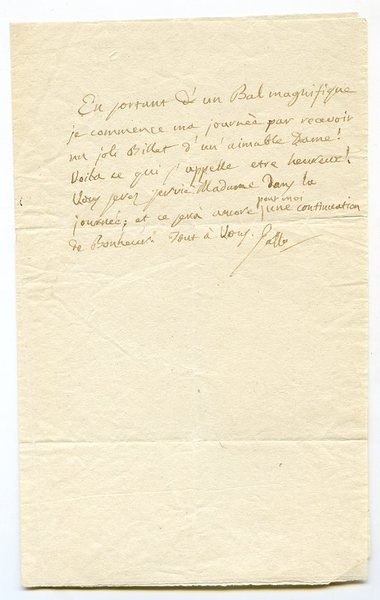 En sortant d'un Bal magnifique
je commence ma journée par recevoir
un joli Billet d'un'aimable Dame!
Voila ce qui j'appelle etre heureux!
Vous serez servie Madame Dans la
journée; et ce serà encore pour moi une continuation
de Bonheur. Tout à Vous. Gallo